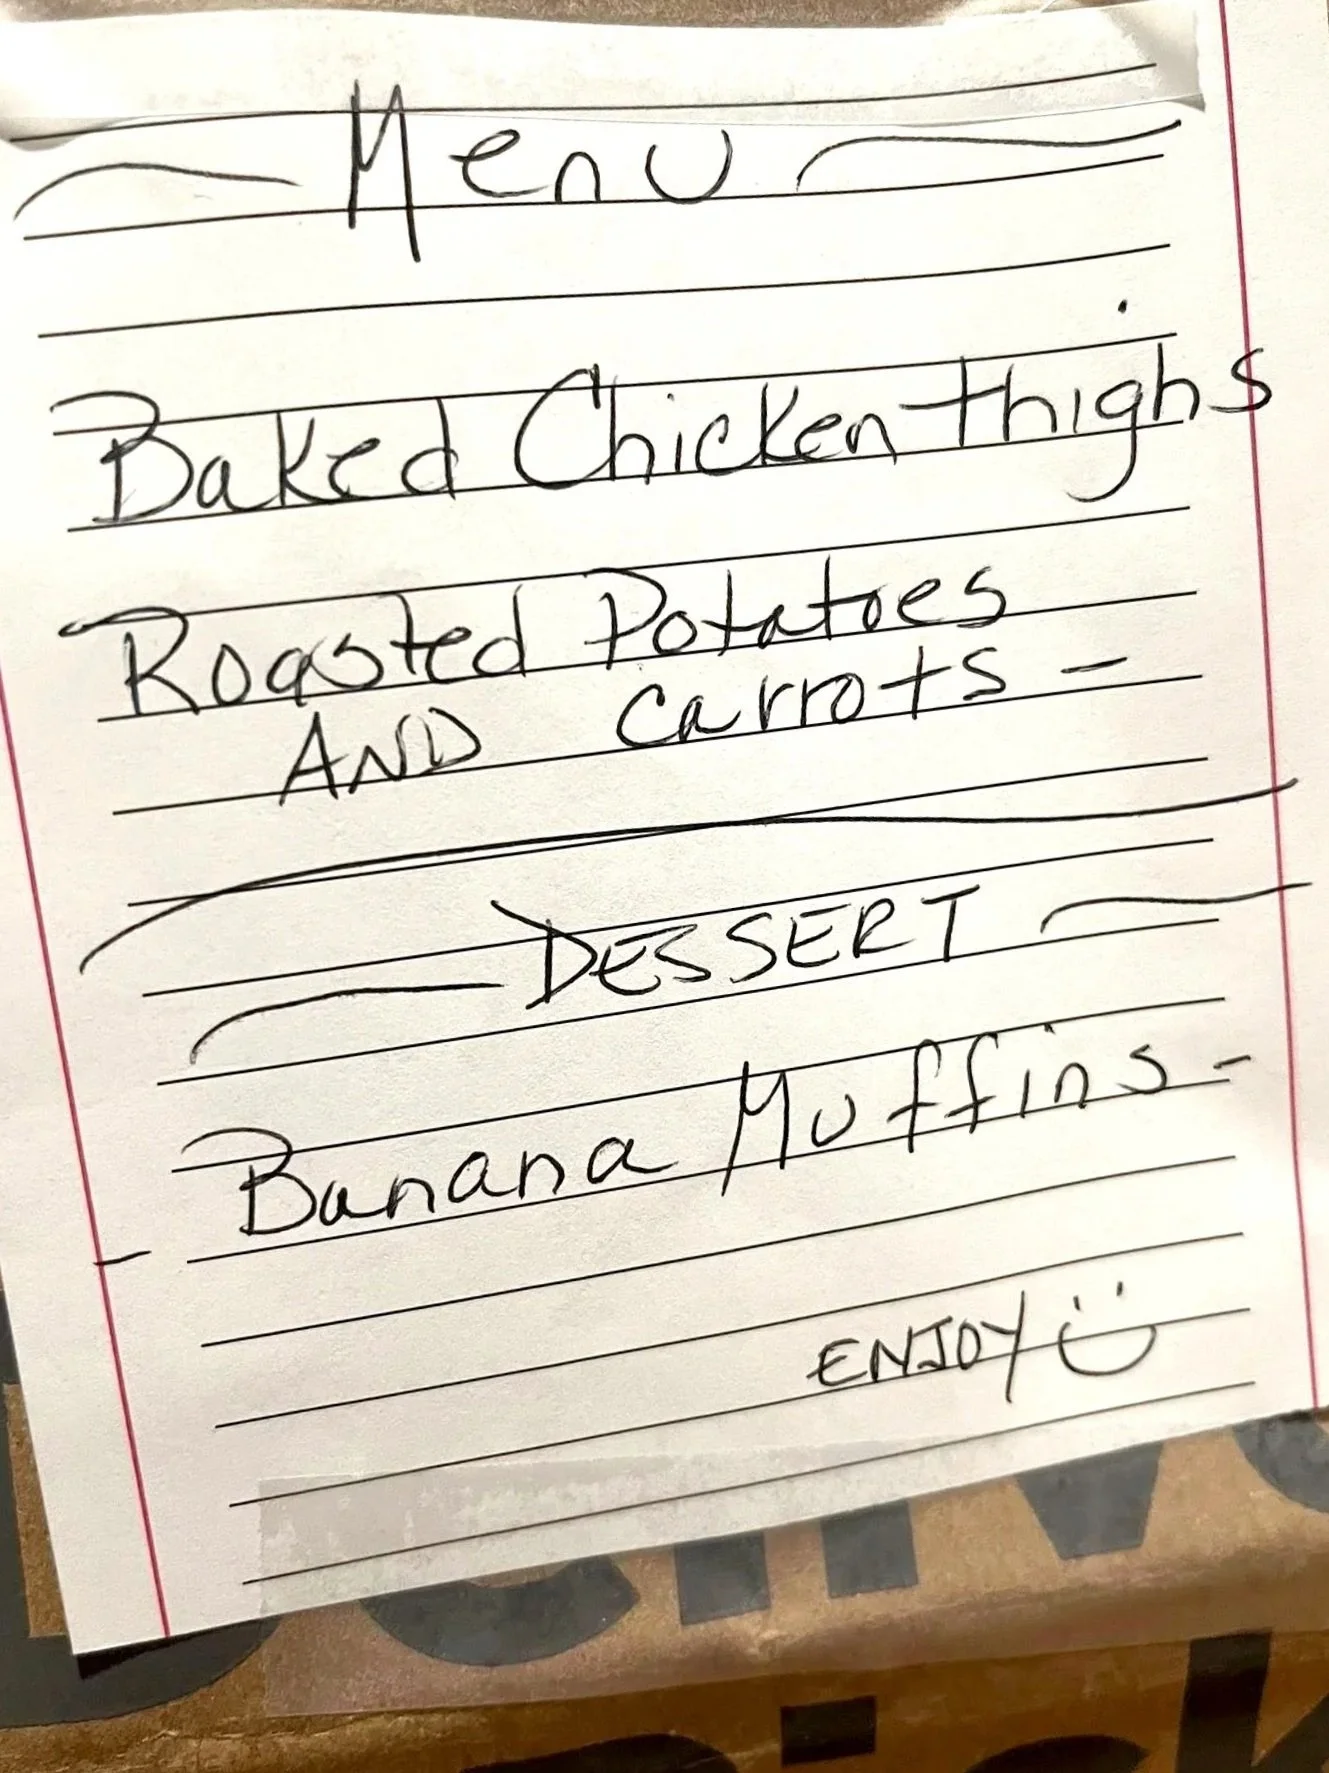 Menu
Baked Chicken thighs
Roasted Potatoes
AND carrots -
DESSERT
Banana Muffins -
ENJOY